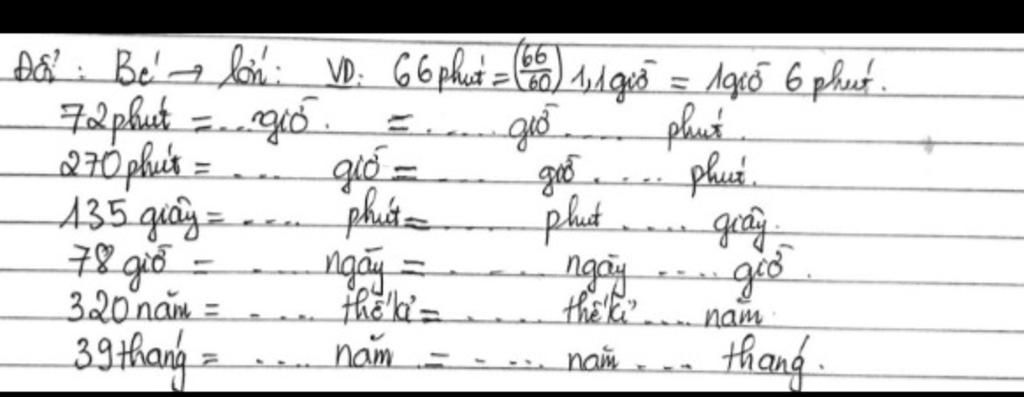 Đổi : Bé → lớn : VD: 66 phút = (66/60) 1,1 giờ = 1 giờ 6 phút.
72 phút = ... giờ. = ..... giờ ..... phút.
270 phút = .... giờ = ..... giờ ..... phút.
135 giây = ..... phút = ..... phút ..... giây.
78 giờ = ..... ngày = ..... ngày .... giờ.
320 năm = ..... thế kỉ = ..... thế kỉ .... năm.
39 tháng = ..... năm = ..... năm .... tháng.